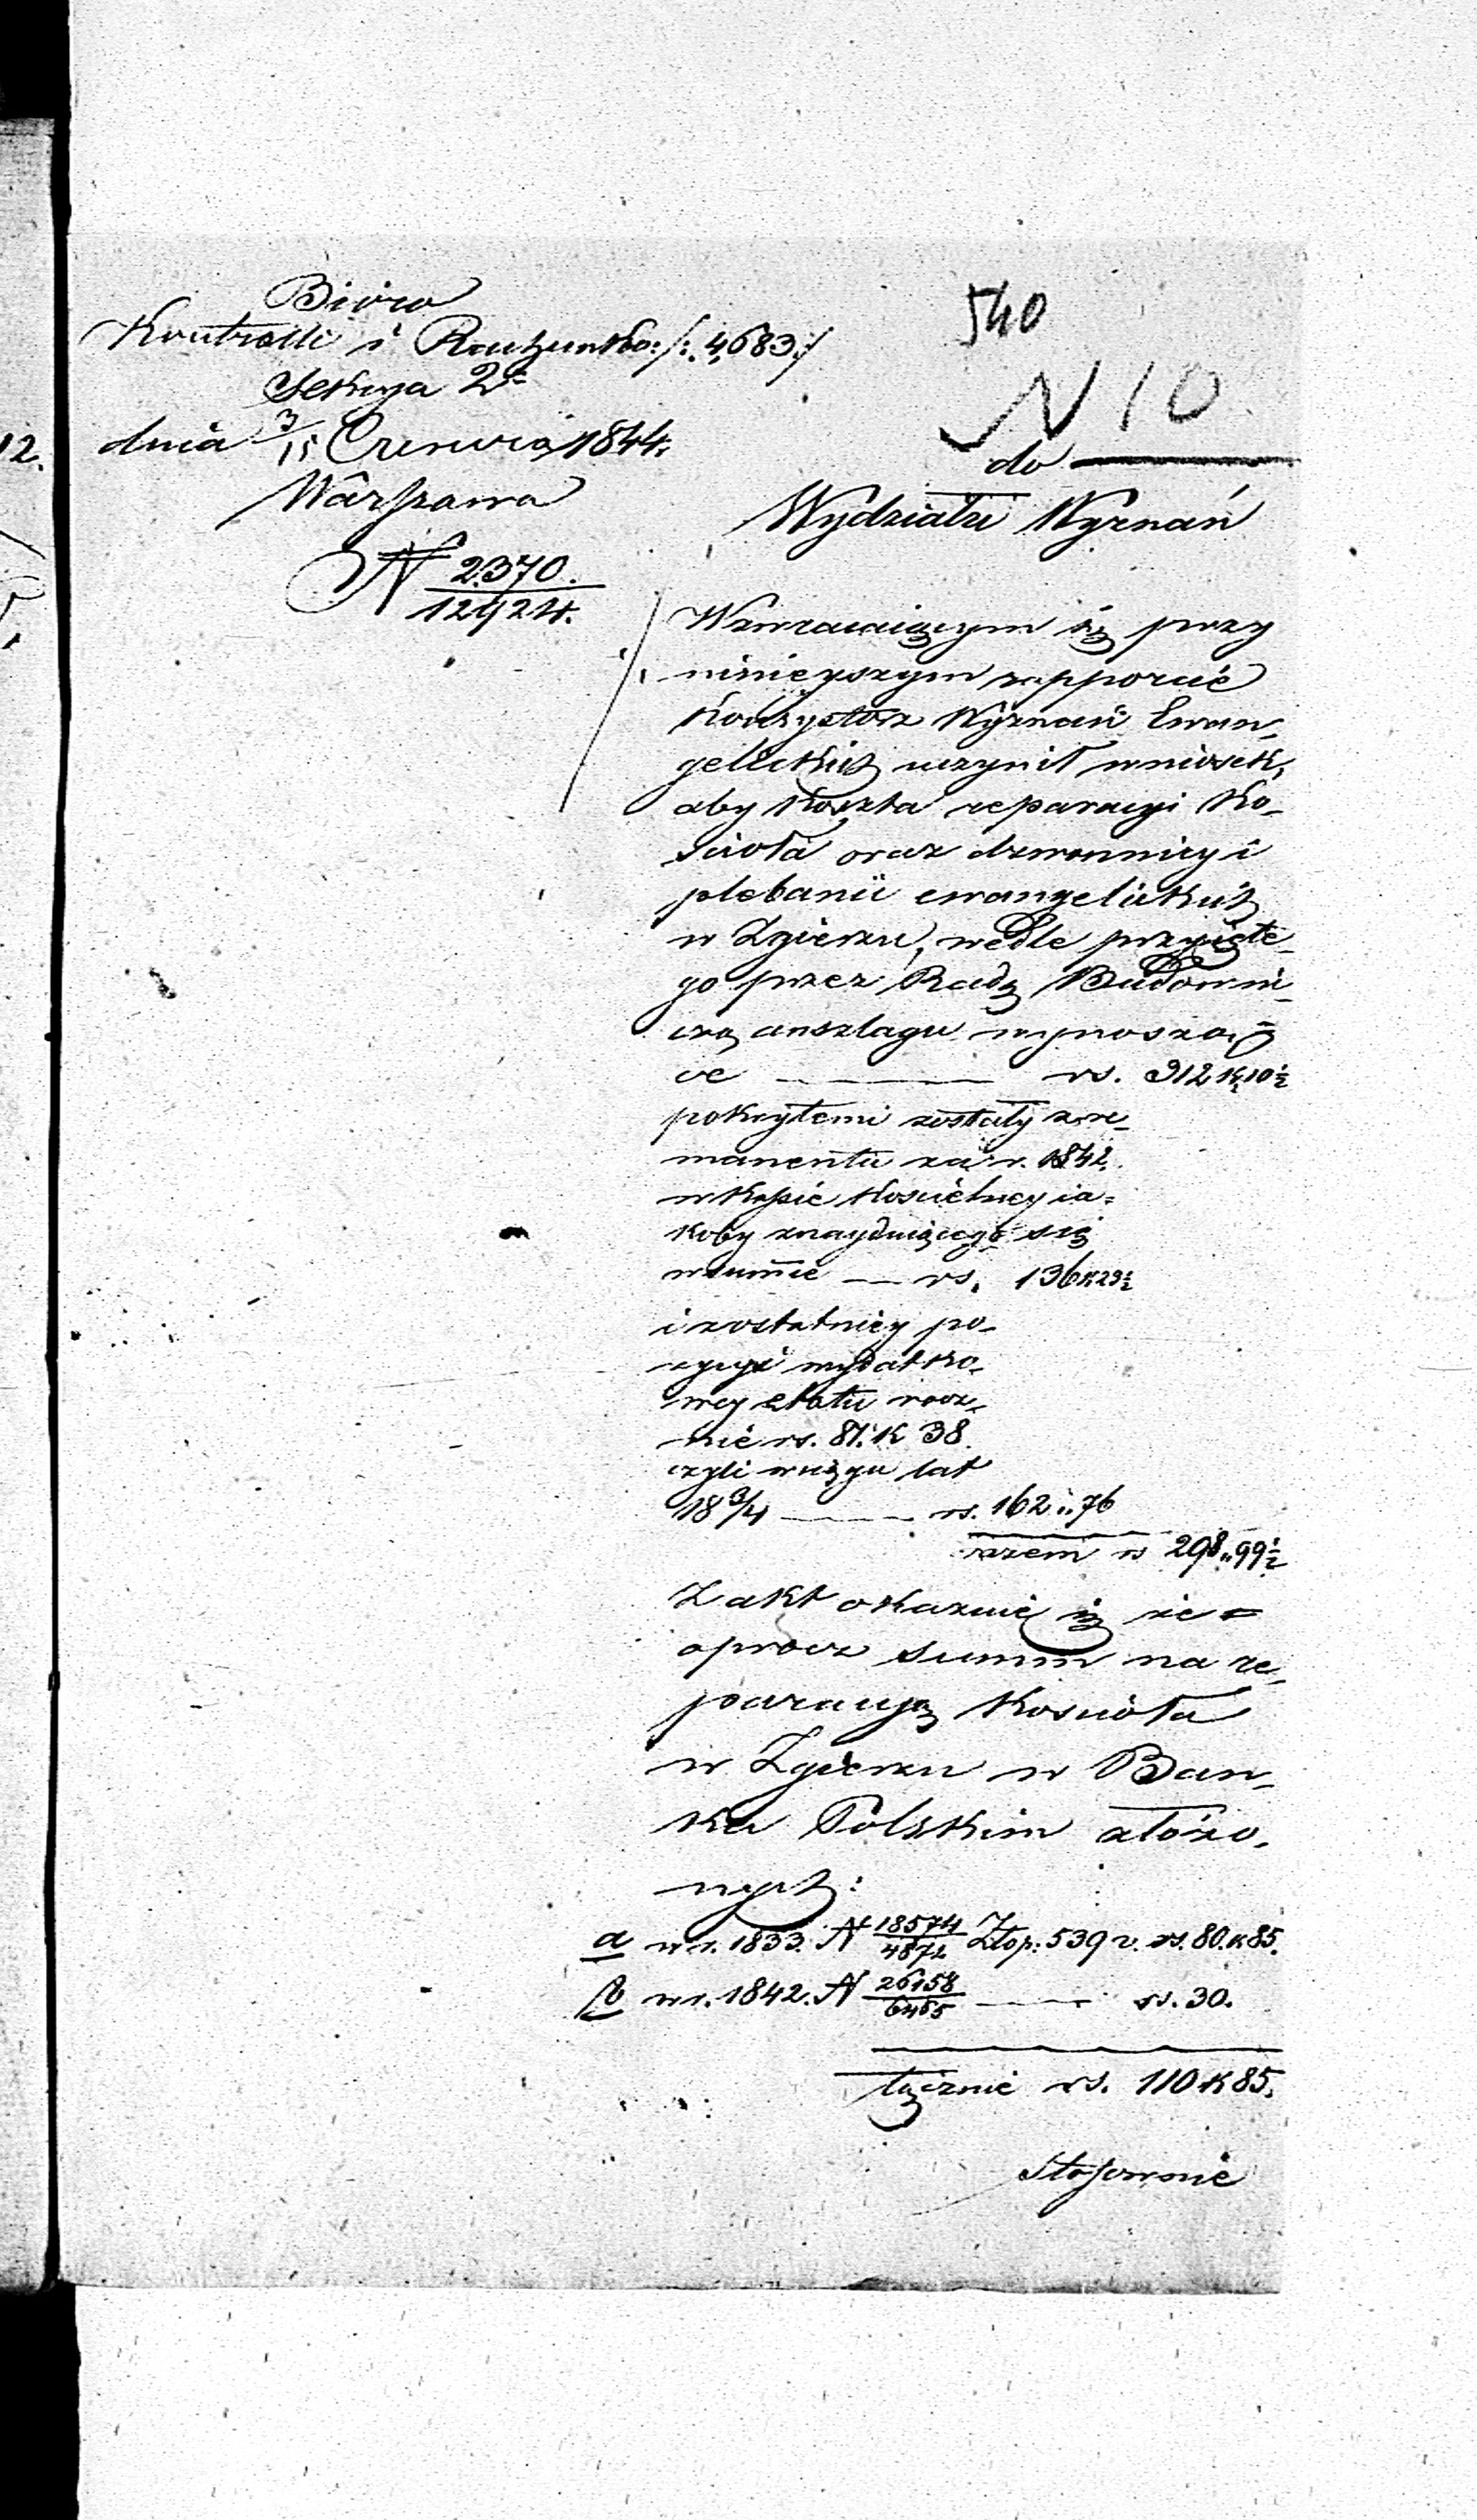 12.
Bióro
Kontrolli i Rachunko: /: 4,683 :/
Sekcya 2ª
dnia 3/15 Czerwca 1844.
Warszawa
N 2370./12424.
540
N 10
do
Wydziału Wyznań
Wzwracaiącym się przy
ninieyszym rapporcie
Konsystorz Wyznań Ewan-
gelickich uczynił wniosek,
aby koszta reparacyi Ko-
ścioła oraz dzwonnicy i
plebanii ewangelickich
w Zgierzu, wedle przyięte-
go przez Radę Budowni-
czą anszlagu wynoszą-
ce ——— rs. 312 k. 10½
pokrytemi zostały z re-
manentu za r. 1842.
w kassie kościelney ia-
koby znayduiącego się
w summie — rs. 136 k 23½
i z ostatniey po-
zycyi wydatko-
wey etatu rocz-
nie rs. 81. k 38.
czyli w ciągu lat
18 3/4 ——— rs. 162 „ 76
razem rs 298 „ 99½
Z akt okazuie się że
oprócz summ na re-
paracyą Kościoła
w Zgierzu w Ban-
ku Polskim złożo-
nych:
a w r. 1833. N 18574/4872 Złop: 539 v. rs. 80. k 85.
b w r. 1842. N 26158/6465 ——— rs. 30.
łącznie rs. 110 k 85.
Stosownie